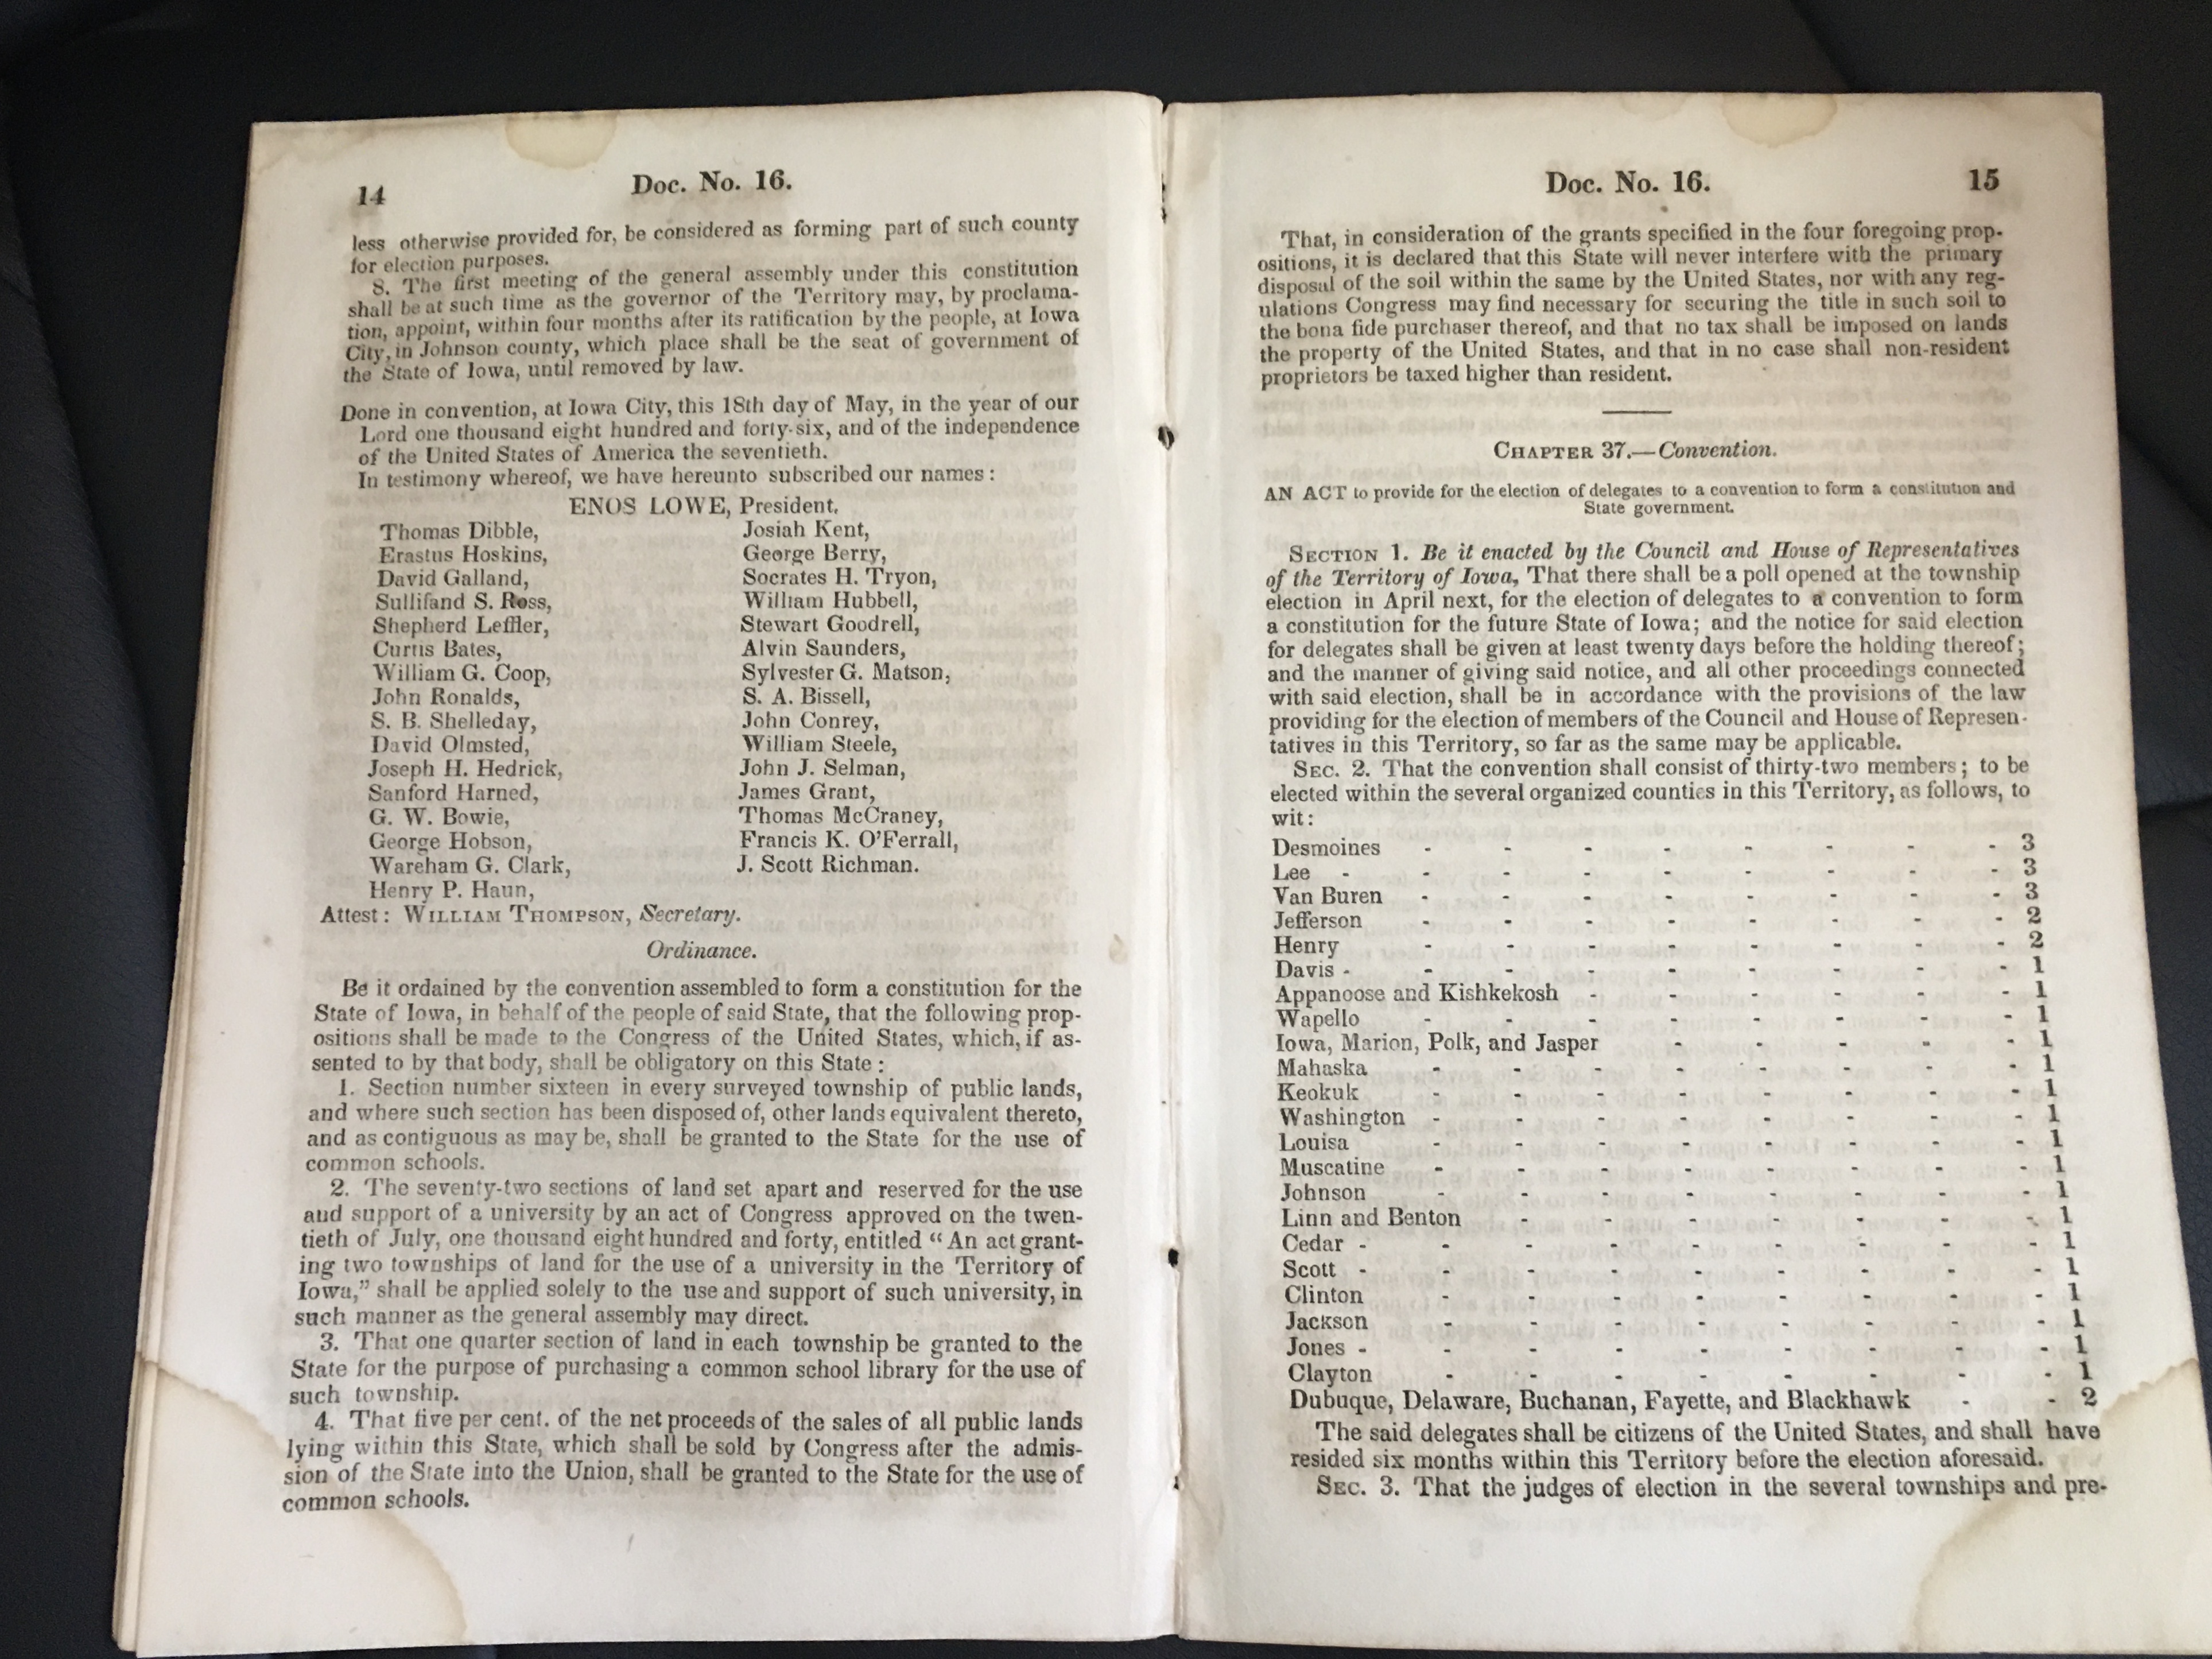 14
Doc. No. 16.
less otherwise provided for, be considered as forming part of such county
for election purposes.
8. The first meeting of the general assembly under this constitution
shall be at such time as the governor of the Territory may, by proclama-
tion, appoint, within four months after its ratification by the people, at Iowa
City, in Johnson county, which place shall be the seat of government of
the State of Iowa, until removed by law.
Done in convention, at Iowa City, this 18th day of May, in the year of our
Lord one thousand eight hundred and forty-six, and of the independence
of the United States of America the seventieth.
In testimony whereof, we have hereunto subscribed our names:
ENOS LOWE, President,
Thomas Dibble,
Erastus Hoskins,
David Galland,
Sullifand S. Ross,
Shepherd Leffler,
Curtis Bates,
William G. Coop,
John Ronalds,
S. B. Shelleday,
David Olmsted,
Joseph H. Hedrick,
Sanford Harned,
G. W. Bowie,
George Hobson,
Wareham G. Clark,
Henry P. Haun,
Josiah Kent,
George Berry,
Socrates H. Tryon,
William Hubbell,
Stewart Goodrell,
Alvin Saunders,
Sylvester G. Matson,
S. A. Bissell,
John Conrey,
William Steele,
John J. Selman,
James Grant,
Thomas McCraney,
Francis K. O'Ferrall,
J. Scott Richman.
Attest: WILLIAM THOMPSON, Secretary.
Ordinance.
Be it ordained by the convention assembled to form a constitution for the
State of Iowa, in behalf of the people of said State, that the following prop-
ositions shall be made to the Congress of the United States, which, if as-
sented to by that body, shall be obligatory on this State:
1. Section number sixteen in every surveyed township of public lands,
and where such section has been disposed of, other lands equivalent thereto,
and as contiguous as may be, shall be granted to the State for the use of
common schools.
2. The seventy-two sections of land set apart and reserved for the use
and support of a university by an act of Congress approved on the twen-
tieth of July, one thousand eight hundred and forty, entitled "An act grant-
ing two townships of land for the use of a university in the Territory of
Iowa," shall be applied solely to the use and support of such university, in
such manner as the general assembly may direct.
3. That one quarter section of land in each township be granted to the
State for the purpose of purchasing a common school library for the use of
such township.
4. That five per cent. of the net proceeds of the sales of all public lands
lying within this State, which shall be sold by Congress after the admis-
sion of the State into the Union, shall be granted to the State for the use of
common schools.
Doc. No. 16.
15
That, in consideration of the grants specified in the four foregoing prop-
ositions, it is declared that this State will never interfere with the primary
disposal of the soil within the same by the United States, nor with any reg-
ulations Congress may find necessary for securing the title in such soil to
the bona fide purchaser thereof, and that no tax shall be imposed on lands
the property of the United States, and that in no case shall non-resident
proprietors be taxed higher than resident.
CHAPTER 37.—Convention.
AN ACT to provide for the election of delegates to a convention to form a constitution and
State government.
SECTION 1. Be it enacted by the Council and House of Representatives
of the Territory of Iowa, That there shall be a poll opened at the township
election in April next, for the election of delegates to a convention to form
a constitution for the future State of Iowa; and the notice for said election
for delegates shall be given at least twenty days before the holding thereof;
and the manner of giving said notice, and all other proceedings connected
with said election, shall be in accordance with the provisions of the law
providing for the election of members of the Council and House of Represen-
tatives in this Territory, so far as the same may be applicable.
SEC. 2. That the convention shall consist of thirty-two members; to be
elected within the several organized counties in this Territory, as follows, to
wit:
Desmoines - - - - - - - - 3
Lee - - - - - - - - - 3
Van Buren - - - - - - - - 3
Jefferson - - - - - - - - 2
Henry - - - - - - - - 2
Davis - - - - - - - - - 1
Appanoose and Kishkekosh - - - - - - 1
Wapello - - - - - - - - 1
Iowa, Marion, Polk, and Jasper - - - - - 1
Mahaska - - - - - - - - 1
Keokuk - - - - - - - - 1
Washington - - - - - - - - 1
Louisa - - - - - - - - 1
Muscatine - - - - - - - - 1
Johnson - - - - - - - - 1
Linn and Benton - - - - - - - 1
Cedar - - - - - - - - - 1
Scott - - - - - - - - - 1
Clinton - - - - - - - - 1
Jackson - - - - - - - - 1
Jones - - - - - - - - - 1
Clayton - - - - - - - - 1
Dubuque, Delaware, Buchanan, Fayette, and Blackhawk - - 2
The said delegates shall be citizens of the United States, and shall have
resided six months within this Territory before the election aforesaid.
SEC. 3. That the judges of election in the several townships and pre-